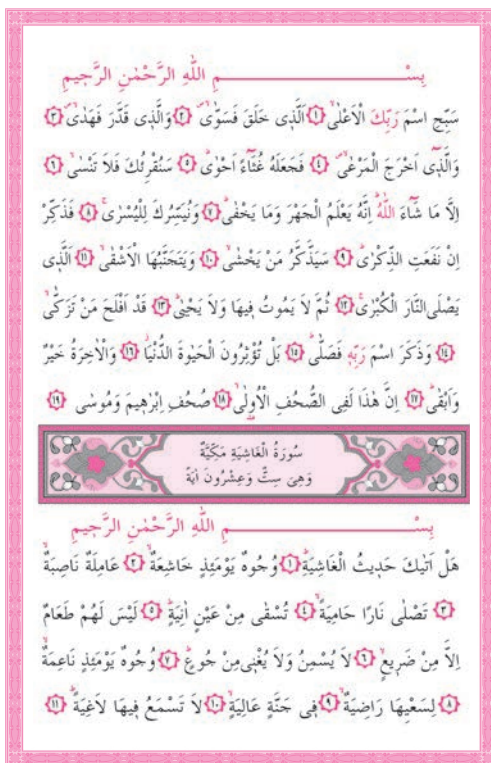 بِسْمِ اللّٰهِ الرَّحْمٰنِ الرَّحٖيمِ
سَبِّحِ اسْمَ رَبِّكَ الْاَعْلٰىۙ ﴿١﴾ اَلَّذٖى خَلَقَ فَسَوّٰىۙ ﴿٢﴾ وَالَّذٖى قَدَّرَ فَهَدٰىۙ ﴿٣﴾
وَالَّذٖٓى اَخْرَجَ الْمَرْعٰىۙ ﴿٤﴾ فَجَعَلَهُ غُثَٓاءً اَحْوٰىۜ ﴿٥﴾ سَنُقْرِئُكَ فَلَا تَنْسٰىۙ ﴿٦﴾
اِلَّا مَا شَٓاءَ اللّٰهُۜ اِنَّهُ يَعْلَمُ الْجَهْرَ وَمَا يَخْفٰىۜ ﴿٧﴾ وَنُيَسِّرُكَ لِلْيُسْرٰىۚ ﴿٨﴾ فَذَكِّرْ
اِنْ نَفَعَتِ الذِّكْرٰىۜ ﴿٩﴾ سَيَذَّكَّرُ مَنْ يَخْشٰىۙ ﴿١٠﴾ وَيَتَجَنَّبُهَا الْاَشْقٰىۙ ﴿١١﴾ اَلَّذٖى
يَصْلَى النَّارَ الْكُبْرٰىۚ ﴿١٢﴾ ثُمَّ لَا يَمُوتُ فٖيهَا وَلَا يَحْيٰىۜ ﴿١٣﴾ قَدْ اَفْلَحَ مَنْ تَزَكّٰىۙ
﴿١٤﴾ وَذَكَرَ اسْمَ رَبِّهٖ فَصَلّٰىۜ ﴿١٥﴾ بَلْ تُؤْثِرُونَ الْحَيٰوةَ الدُّنْيَاۘ ﴿١٦﴾ وَالْاٰخِرَةُ خَيْرٌ
وَاَبْقٰىۜ ﴿١٧﴾ اِنَّ هٰذَا لَفِى الصُّحُفِ الْاُولٰىۙ ﴿١٨﴾ صُحُفِ اِبْرٰهٖيمَ وَمُوسٰى ﴿١٩﴾
سُورَةُ الْغَاشِيَةِ مَكِّيَّةٌ
وَهِىَ سِتٌّ وَعِشْرُونَ اٰيَةً
بِسْمِ اللّٰهِ الرَّحْمٰنِ الرَّحٖيمِ
هَلْ اَتٰيكَ حَدٖيثُ الْغَاشِيَةِۜ ﴿١﴾ وُجُوهٌ يَوْمَئِذٍ خَاشِعَةٌۙ ﴿٢﴾ عَامِلَةٌ نَاصِبَةٌۙ
﴿٣﴾ تَصْلٰى نَارًا حَامِيَةًۙ ﴿٤﴾ تُسْقٰى مِنْ عَيْنٍ اٰنِيَةٍۜ ﴿٥﴾ لَيْسَ لَهُمْ طَعَامٌ
اِلَّا مِنْ ضَرٖيعٍۙ ﴿٦﴾ لَا يُسْمِنُ وَلَا يُغْنٖى مِنْ جُوعٍۜ ﴿٧﴾ وُجُوهٌ يَوْمَئِذٍ نَاعِمَةٌۙ
﴿٨﴾ لِسَعْيِهَا رَاضِيَةٌۙ ﴿٩﴾ فٖى جَنَّةٍ عَالِيَةٍۙ ﴿١٠﴾ لَا تَسْمَعُ فٖيهَا لَاغِيَةًۜ ﴿١١﴾